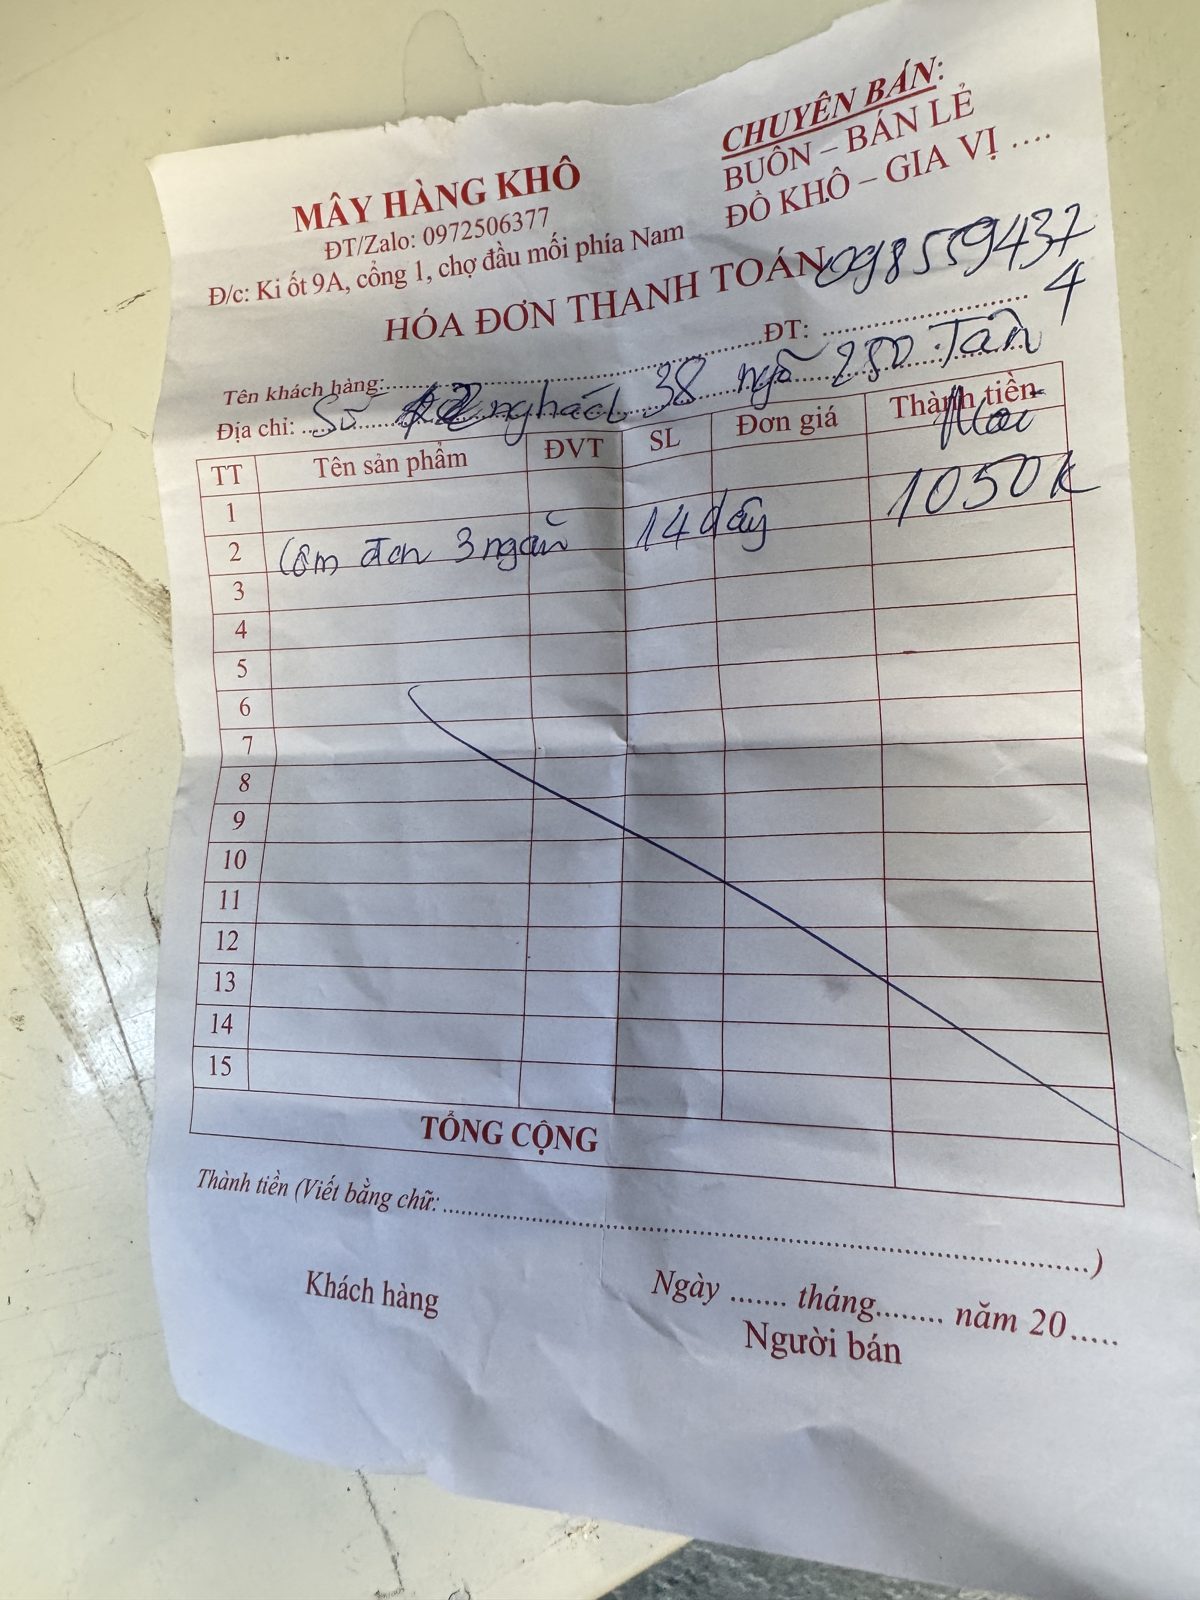 MÂY HÀNG KHÔ
ĐT/Zalo: 0972506377
Đ/c: Ki ốt 9A, cổng 1, chợ đầu mối phía Nam
CHUYÊN BÁN:
BUÔN – BÁN LẺ
ĐỒ KHÔ – GIA VỊ ....
HÓA ĐƠN THANH TOÁN
Tên khách hàng:.......ĐT: ....... 098559437
4
Địa chỉ: Số nghách 38 ngõ 250 Tân
Mai
TT Tên sản phẩm ĐVT SL Đơn giá Thành tiền
1
2 Cơm đen 3 ngăn 14 dây 1050k
3
4
5
6
7
8
9
10
11
12
13
14
15
TỔNG CỘNG
Thành tiền (Viết bằng chữ: .......)
Khách hàng
Ngày ....... tháng........ năm 20.....
Người bán